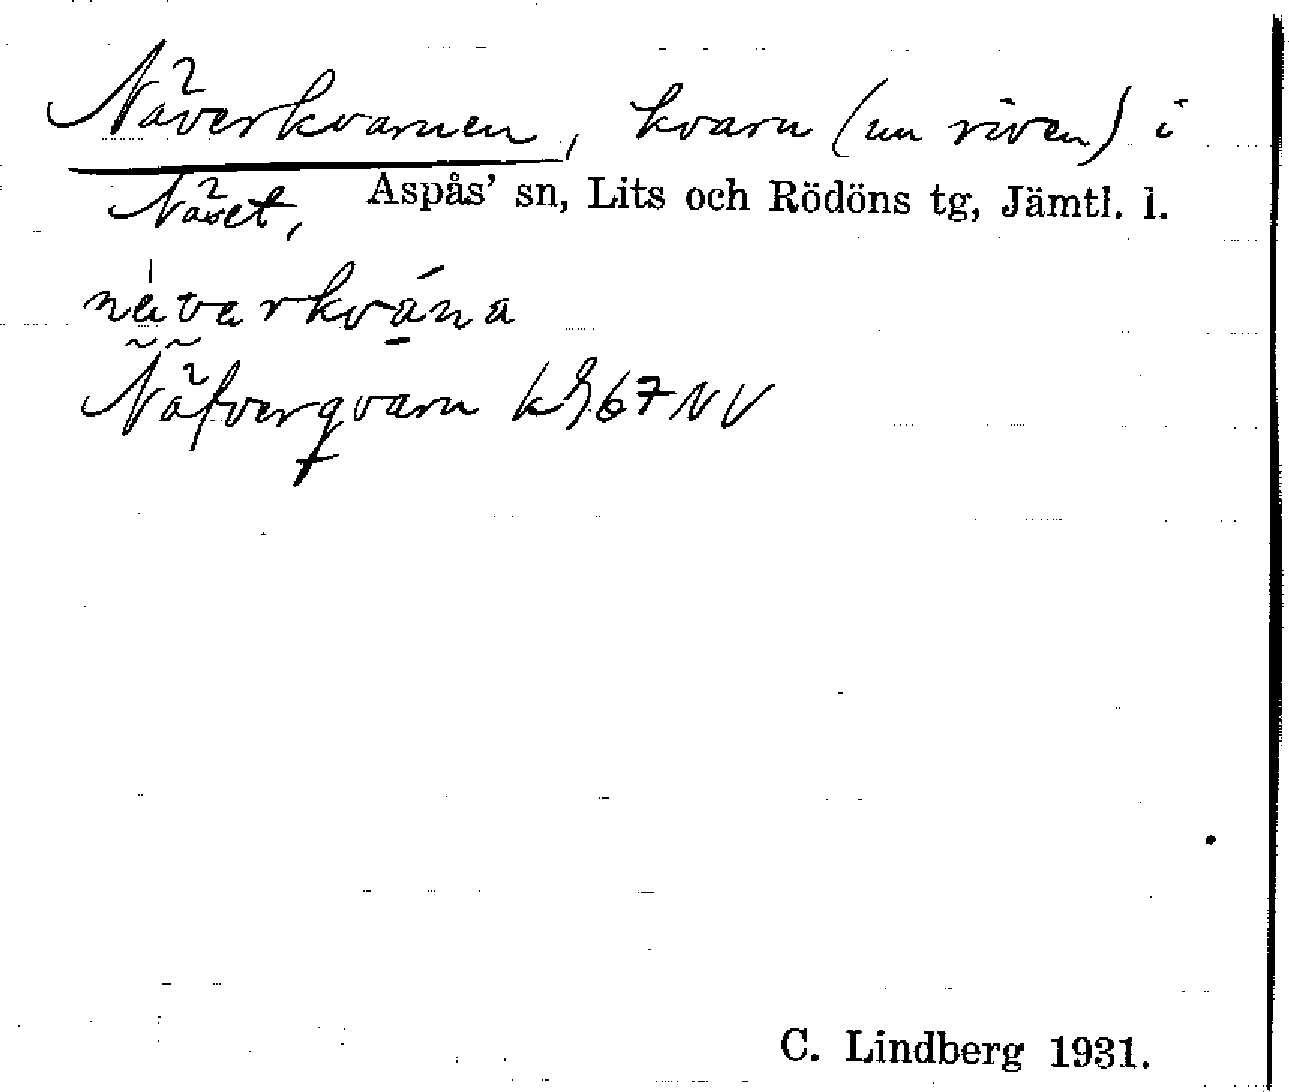 Näverkvarnen, kvarn (nu riven) i
Näset, Aspås' sn, Lits och Rödöns tg, Jämtl. l.
nävarkvána
Näfverqvarn 67 NV
C. Lindberg 1931.